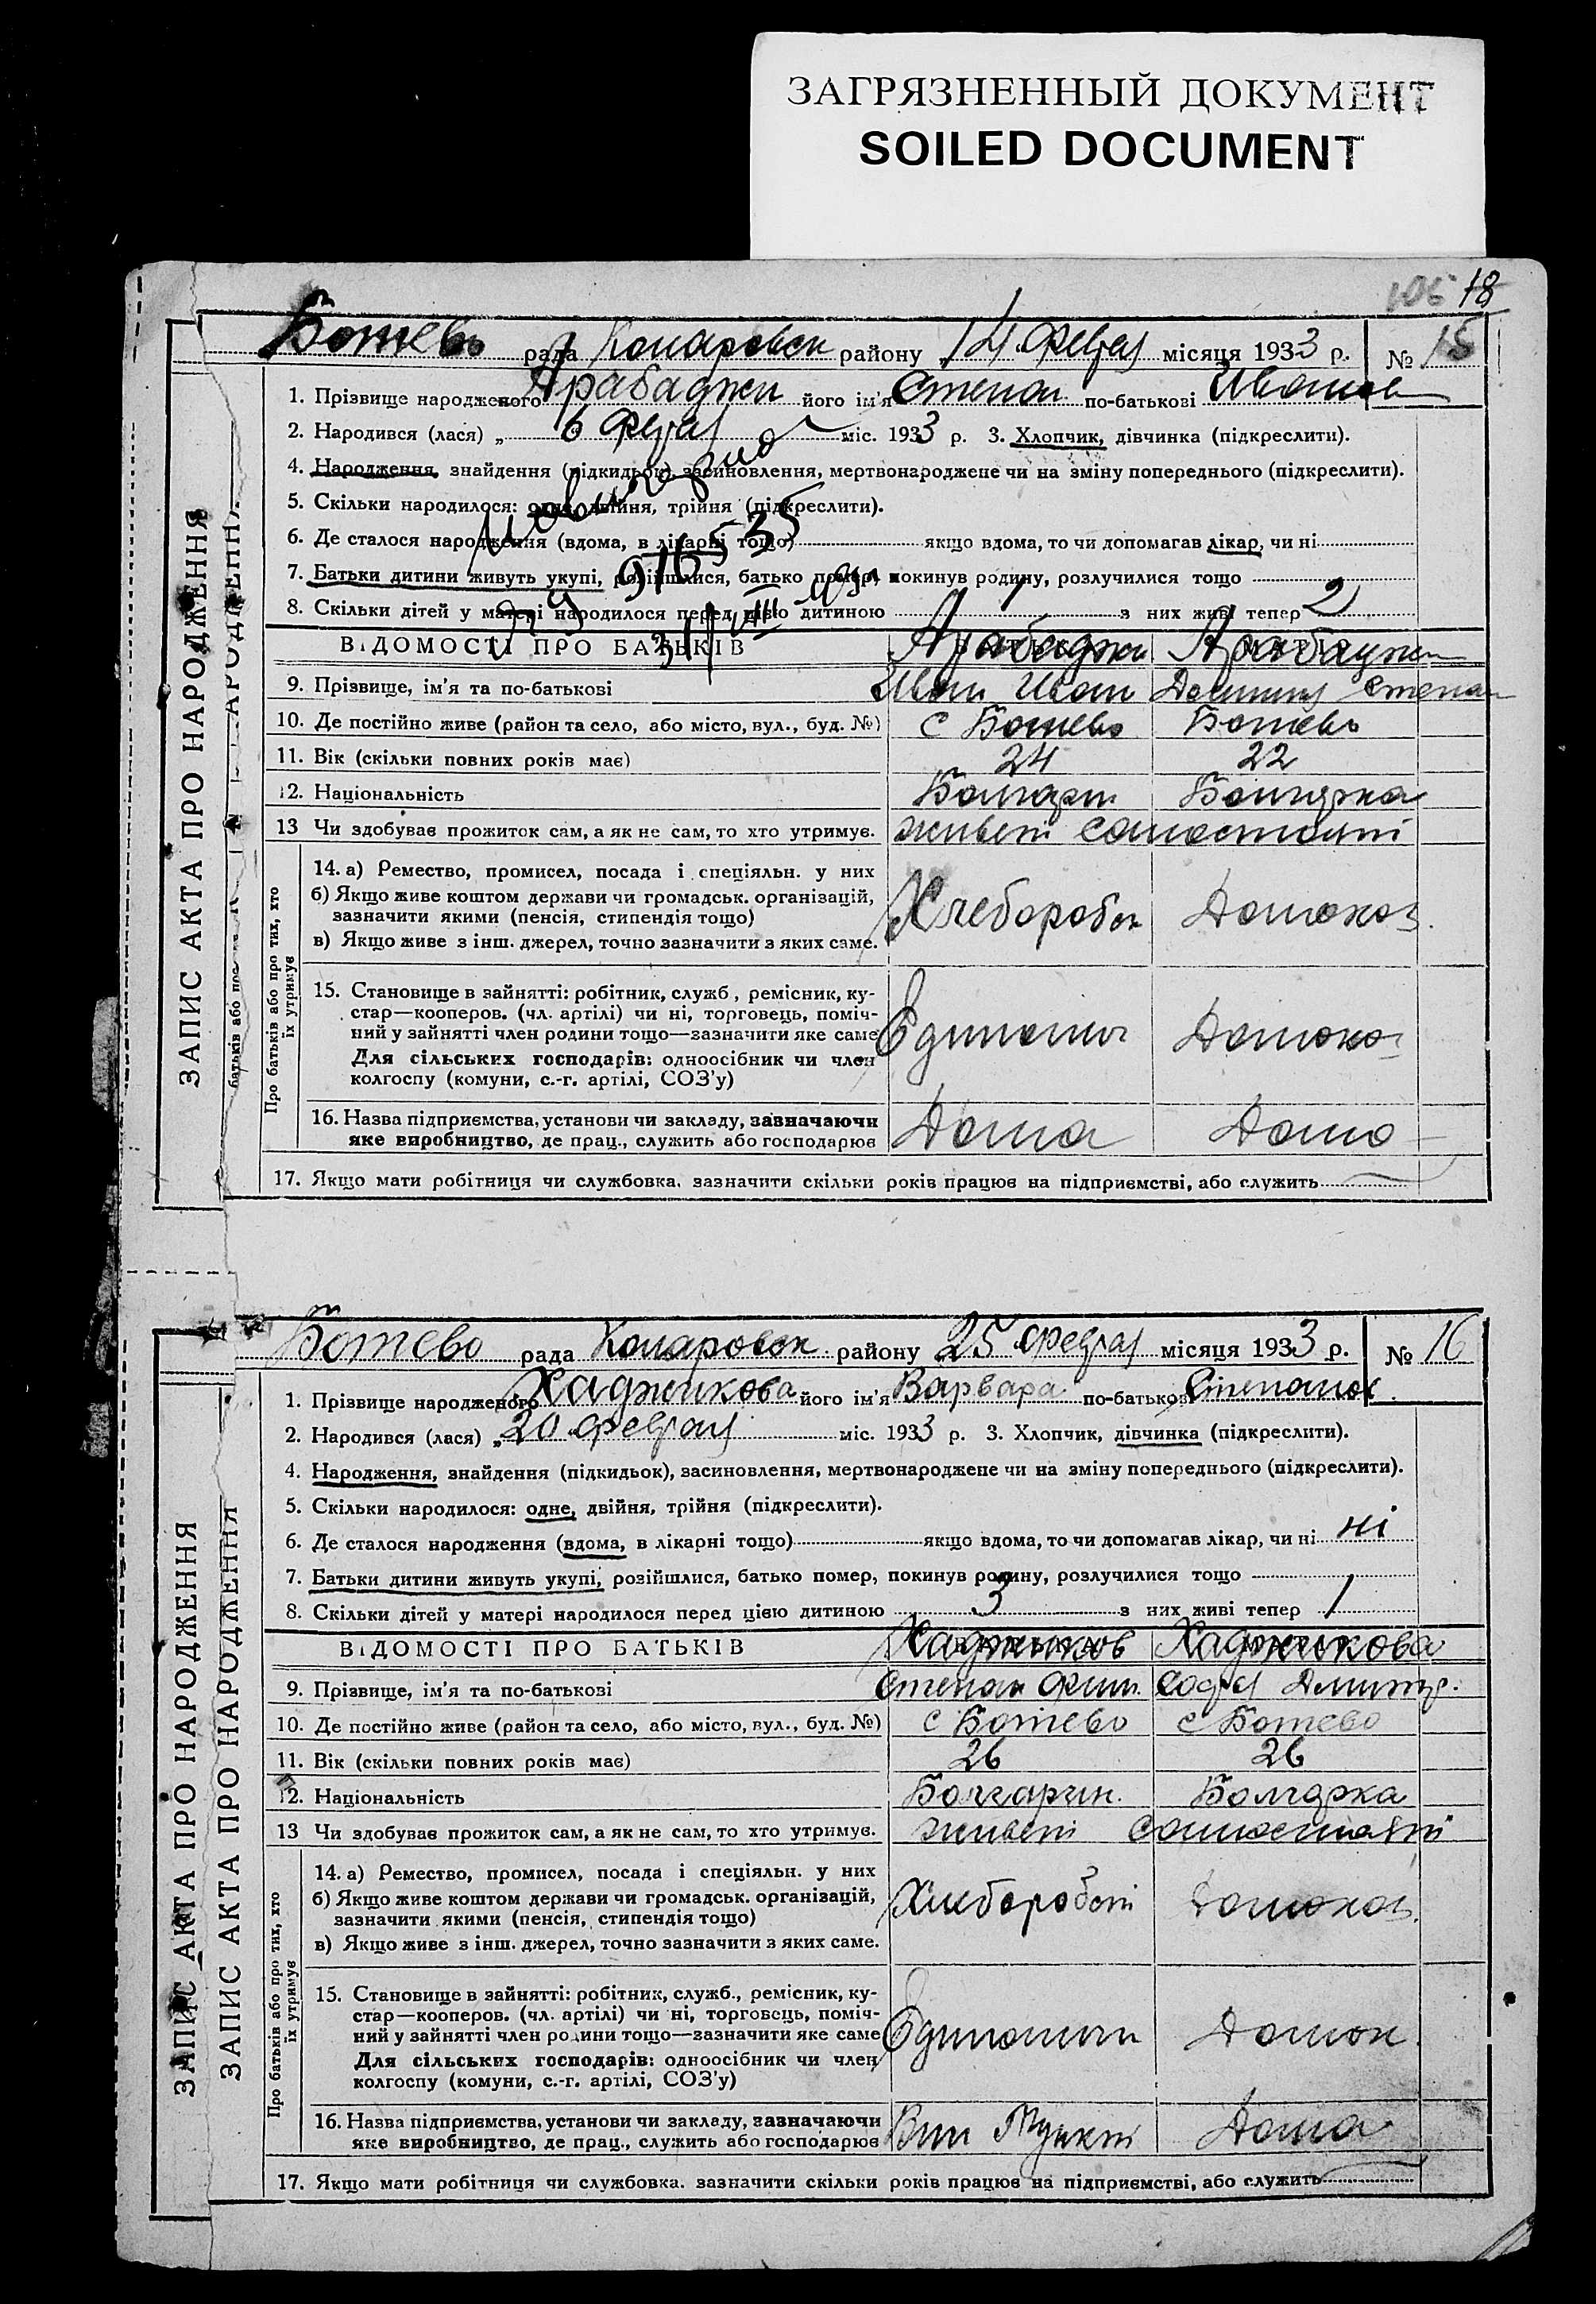 ЗАГРЯЗНЕННЫЙ ДОКУМЕНТ
SOILED DOCUMENT
18
Ботево рада Коларовск району 14 Феврал місяця 1933 р. № 15
1. Прізвище народженого Арабаджи його ім'я Степан по-батькові Иванов
2. Народився (лася) „ 6 Феврал міс. 1933 р. 3. Хлопчик, дівчинка (підкреслити).
4. Народження, знайдення (підкидьок), засиновлення, мертвонароджене чи на зміну попереднього (підкреслити).
5. Скільки народилося: одне, двійня, трійня (підкреслити).
6. Де сталося народження (вдома, в лікарні тощо) якщо вдома, то чи допомагав лікар, чи ні
7. Батьки дитини живуть укупі, розійшлися, батько помер, покинув родину, розлучилися тощо
8. Скільки дітей у матері народилося перед цією дитиною 1 з них живі тепер 2
ВІДОМОСТІ ПРО БАТЬКІВ Арабаджи Арабаджи
9. Прізвище, ім'я та по-батькові Иван Иван Степан
10. Де постійно живе (район та село, або місто, вул., буд. №) с Ботево Ботево
11. Вік (скільки повних років має) 24 22
12. Національність Болгарин Болгарка
13 Чи здобував прожиток сам, а як не сам, то хто утримує. живет
14. а) Ремество, промисел, посада і спеціяльн. у них
б) Якщо живе коштом держави чи громадськ. організацій,
зазначити якими (пенсія, стипендія тощо)
в) Якщо живе з інш. джерел, точно зазначити з яких саме.
Хлебороб Домохоз.
15. Становище в зайнятті: робітник, служб., ремісник, ку-
стар—кооперов. (чл. артілі) чи ні, торговець, поміч-
ний у зайнятті член родини тощо—зазначити яке саме
Для сільських господарів: одноосібник чи член
колгоспу (комуни, с.-г. артілі, СОЗ'у)
16. Назва підприємства, установи чи закладу, зазначаючи
яке виробництво, де прац., служить або господарює
Дома Дома
17. Якщо мати робітниця чи службовка, зазначити скільки років працює на підприємстві, або служить
ЗАПИС АКТА ПРО НАРОДЖЕННЯ
Про батьків або про тих, хто
їх утримує
Ботево рада Коларовск району 25 Феврал місяця 1933 р. № 16
1. Прізвище народженого Хаджикова його ім'я Варвара по-батькові Степанов
2. Народився (лася) „ 20 Феврал міс. 1933 р. 3. Хлопчик, дівчинка (підкреслити).
4. Народження, знайдення (підкидьок), засиновлення, мертвонароджене чи на зміну попереднього (підкреслити).
5. Скільки народилося: одне, двійня, трійня (підкреслити).
6. Де сталося народження (вдома, в лікарні тощо) якщо вдома, то чи допомагав лікар, чи ні ні
7. Батьки дитини живуть укупі, розійшлися, батько помер, покинув родину, розлучилися тощо
8. Скільки дітей у матері народилося перед цією дитиною 3 з них живі тепер 1
ВІДОМОСТІ ПРО БАТЬКІВ Хаджиков Хаджикова
9. Прізвище, ім'я та по-батькові Степан Фил. Софя Дмитр.
10. Де постійно живе (район та село, або місто, вул., буд. №) с Ботево с Ботево
11. Вік (скільки повних років має) 26 26
12. Національність Болгарин. Болгарка
13 Чи здобував прожиток сам, а як не сам, то хто утримує. живет
14. а) Ремество, промисел, посада і спеціяльн. у них
б) Якщо живе коштом держави чи громадськ. організацій,
зазначити якими (пенсія, стипендія тощо)
в) Якщо живе з інш. джерел, точно зазначити з яких саме.
Домохоз.
15. Становище в зайнятті: робітник, служб., ремісник, ку-
стар—кооперов. (чл. артілі) чи ні, торговець, поміч-
ний у зайнятті член родини тощо—зазначити яке саме
Для сільських господарів: одноосібник чи член
колгоспу (комуни, с.-г. артілі, СОЗ'у)
Домох.
16. Назва підприємства, установи чи закладу, зазначаючи
яке виробництво, де прац., служить або господарює
Дома
17. Якщо мати робітниця чи службовка, зазначити скільки років працює на підприємстві, або служить
ЗАПИС АКТА ПРО НАРОДЖЕННЯ
ЗАПИС АКТА ПРО НАРОДЖЕННЯ
Про батьків або про тих, хто
їх утримує